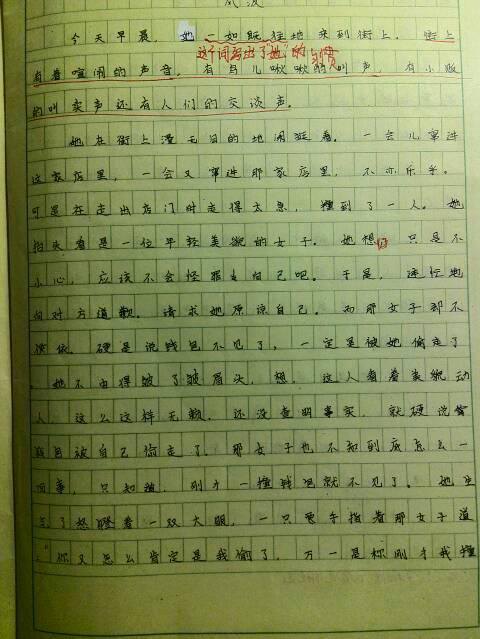 风波
今天早晨，她一如既往地来到街上。街上
这个词写出了"她"的习惯
有着喧闹的声音，有鸟儿啾啾的叫声，有小贩
的叫卖声还有人们的交谈声。
她在街上漫无目的地闲逛着。一会儿窜进
这家店里，一会又窜进那家店里，不亦乐乎。
可是在走出店门时走得太急，撞到了一人。她
抬头看是一位年轻美貌的女子。她想，只是不
小心，应该不会怪罪自己吧。于是，连忙地
向对方道歉。请求她原谅自己。而那女子却不
硬是说钱包不见了，一定是被她偷走了
。她不由得皱了皱眉头，想，这人看着美貌动
人，这么这样无赖。还没查明事实，就硬说
包被自己偷走了。那女子也不知到底怎么一
回事，只知道，刚才一撞钱包就不见了。她生
气了怒瞪着一双大眼，一只手指着那女子道
："你又怎么肯定是我偷了，万一是你刚才我撞